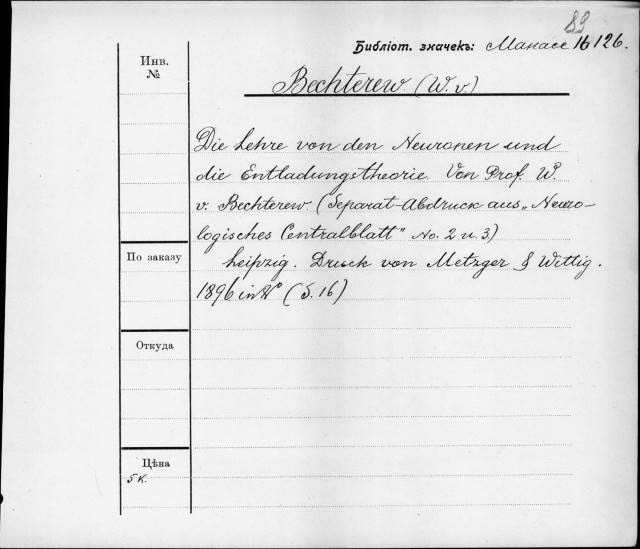 89
Библіот. значекъ: Манасс 16126.
Инв.
№
Bechterew (W. v.)
Die Lehre von den Neuronen und
die Entladungstheorie. Von Prof. W.
v. Bechterew. (Separat-Abdruck aus „Neuro-
logisches Centralblatt" No. 2 u. 3)
По заказу
Leipzig. Druck von Metzger & Wittig.
1896 in 8° (S. 16)
Откуда
Цѣна
5 к.